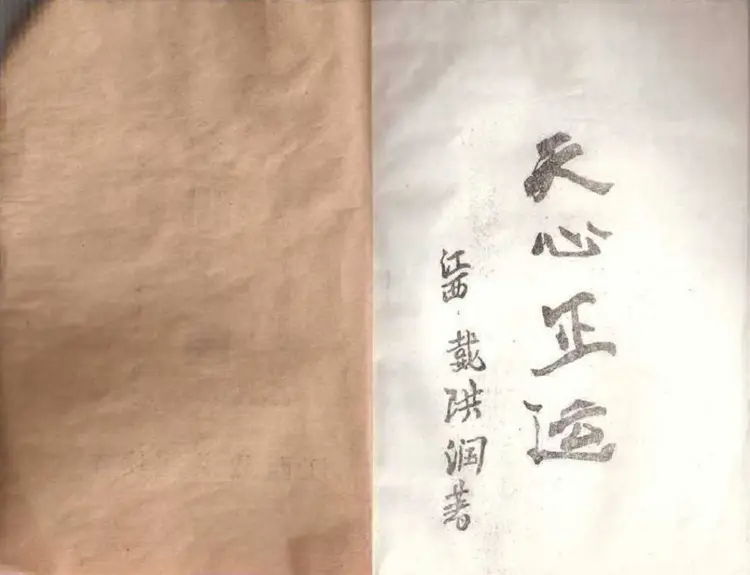 天心正运
江西·戴洪润著